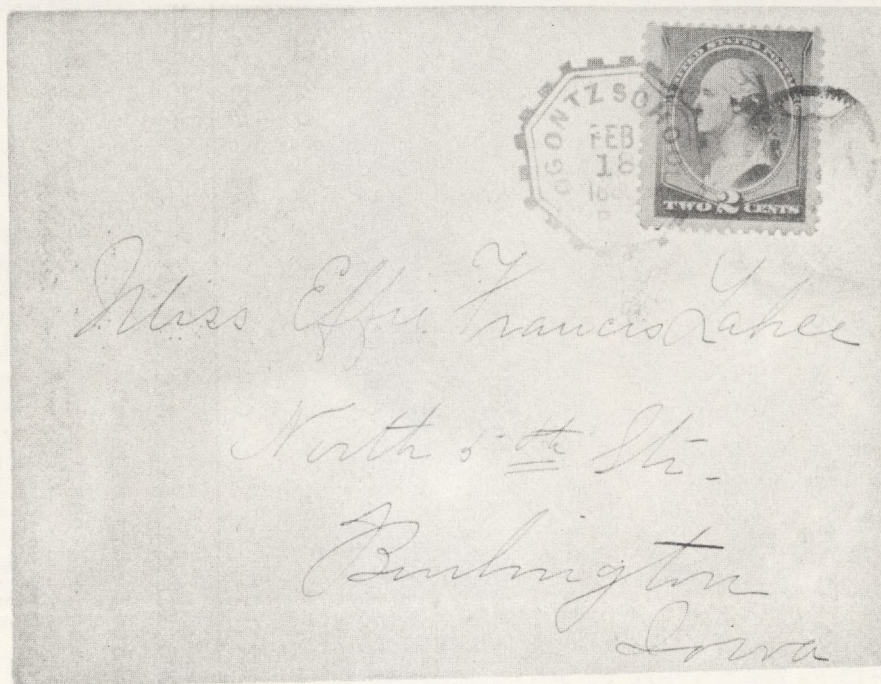 OGONTZ SCHOOL
FEB
18
UNITED STATES POSTAGE
TWO 2 CENTS
Miss Effie Francis Lahee
North 5th Str.
Burlington
Iowa